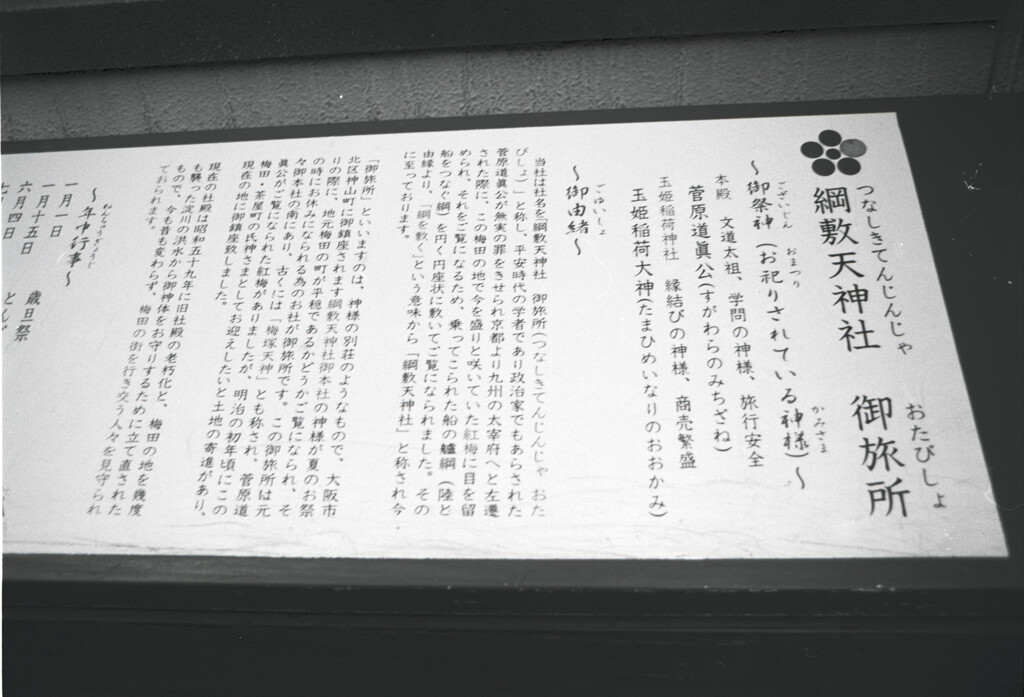 綱敷天神社 御旅所
つなしきてんじんじゃ おたびしょ
〜御祭神(お祀りされている神様)〜
ございじん おまつり かみさま
本殿 文道太祖、学問の神様、旅行安全
菅原道眞公(すがわらのみちざね)
玉姫稲荷神社 縁結びの神様、商売繁盛
玉姫稲荷大神(たまひめいなりのおおかみ)
〜御由緒〜
ごゆいしょ
当社は社名を「綱敷天神社 御旅所(つなしきてんじんじゃ おた
びしょ)」と称し、平安時代の学者であり政治家でもあらされた
菅原道眞公が無実の罪をきせられ京都より九州の太宰府へと左遷
された際に、この梅田の地で今を盛りと咲いていた紅梅に目を留
められ、それをご覧になるため、乗ってこられた船の艫綱(陸と
船をつなぐ綱)を円く円座状に敷いてご覧になられました。その
由縁より、「綱を敷く」という意味から「綱敷天神社」と称され今
に至っております。
「御旅所」といいますのは、神様の別荘のようなもので、大阪市
北区神山町に御鎮座されます綱敷天神社御本社の神様が夏のお祭
りの際に、地元梅田の町が平穏であるかどうかご覧になられ、そ
の時にお休みになられる為のお社が御旅所です。この御旅所は元
々御本社の南にあり、古くには「梅塚天神」とも称され、菅原道
眞公がご覧になられた紅梅がありましたが、明治の初年頃にこの
梅田・茶屋町の氏神さまとしてお迎えしたいと土地の寄進があり、
現在の地に御鎮座致しました。
現在の社殿は昭和五十九年に旧社殿の老朽化と、梅田の地を幾度
も襲った淀川の洪水から御神体をお守りするために立て直された
もので、今も昔も変わらず、梅田の街を行き交う人々を見守られ
ておられます。
〜年中行事〜
ねんちゅうぎょうじ
一月一日 歳旦祭
一月十五日 とんど
六月四日